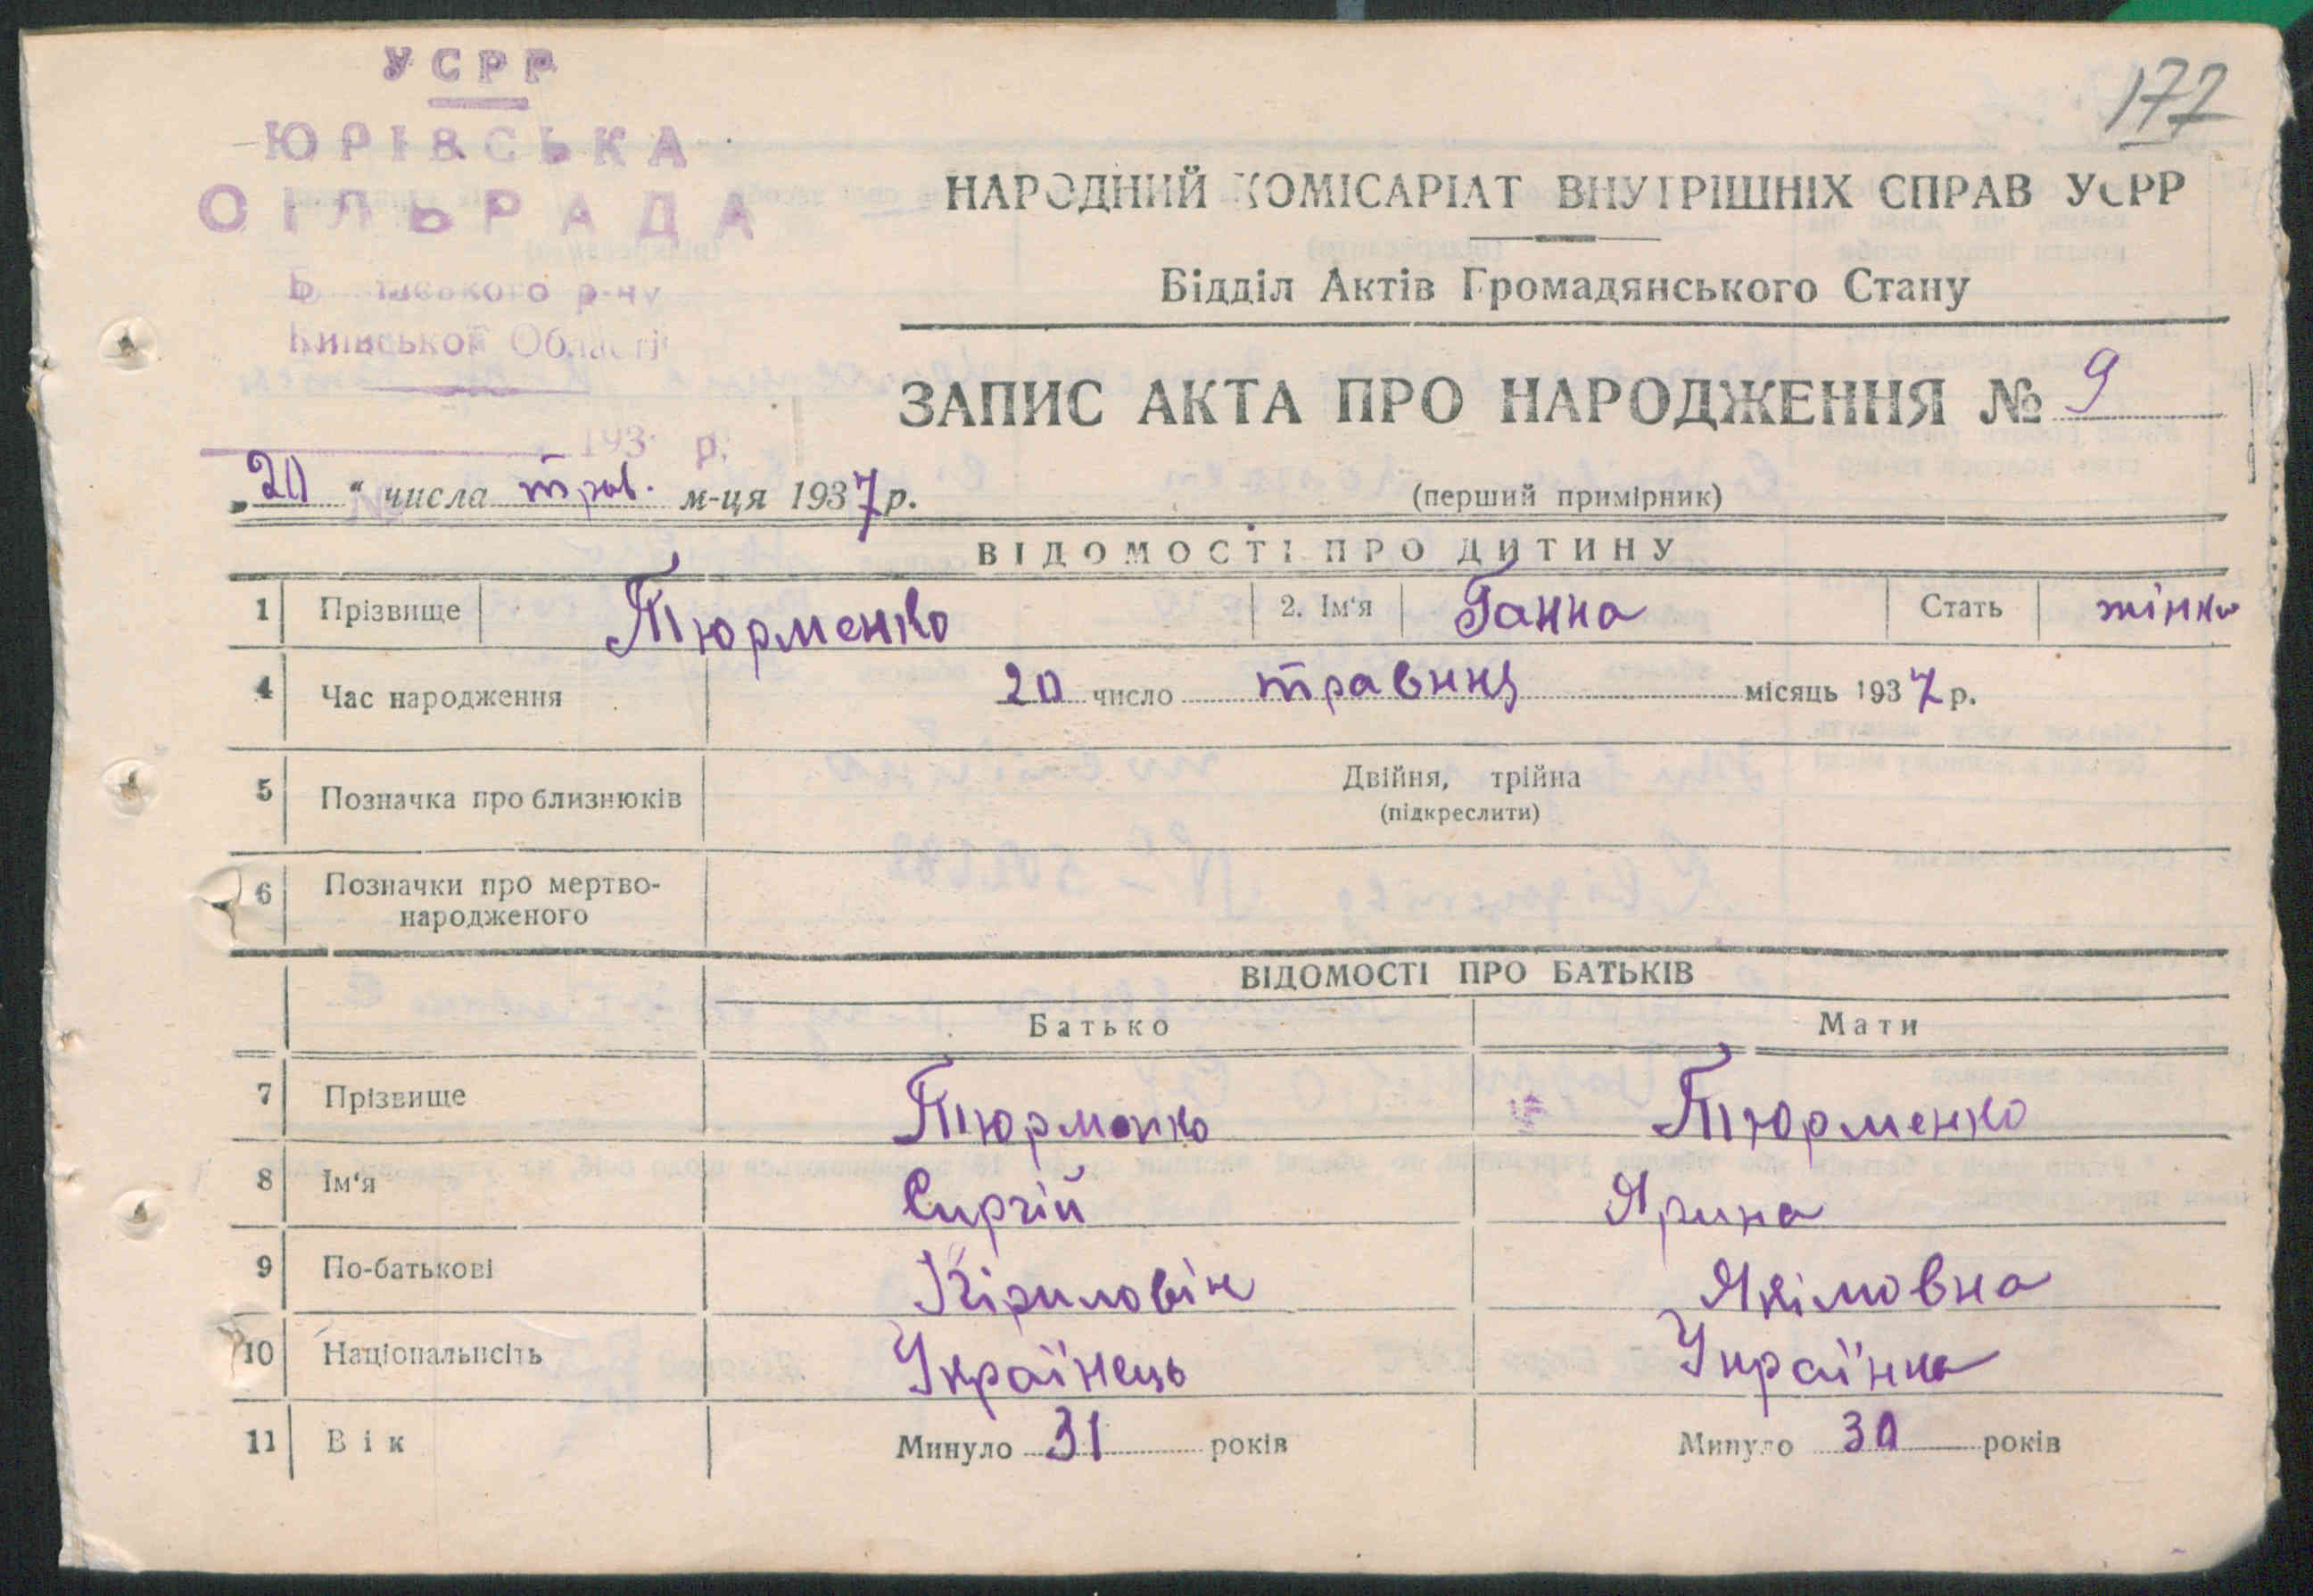 УСРР
ЮРІВСЬКА
СІЛЬРАДА
р-ну
Київської Області
193 р.
№
172
НАРОДНИЙ КОМІСАРІАТ ВНУТРІШНІХ СПРАВ УСРР
Відділ Актів Громадянського Стану
ЗАПИС АКТА ПРО НАРОДЖЕННЯ № 9
„20“ числа трав. м-ця 1937 р.
(перший примірник)
ВІДОМОСТІ ПРО ДИТИНУ
1 Прізвище Тюрменко 2. Ім‘я Ганна Стать жінка
4 Час народження 20 число травня місяць 1937 р.
5 Позначка про близнюків Двійня, трійна
(підкреслити)
6 Позначки про мертво-
народженого
ВІДОМОСТІ ПРО БАТЬКІВ
Батько Мати
7 Прізвище Тюрменко Тюрменко
8 Ім‘я Сиргій Ярина
9 По-батькові Кіриловіч Якімовна
10 Національнсіть Українець Українка
11 Вік Минуло 31 років Минуло 30 років